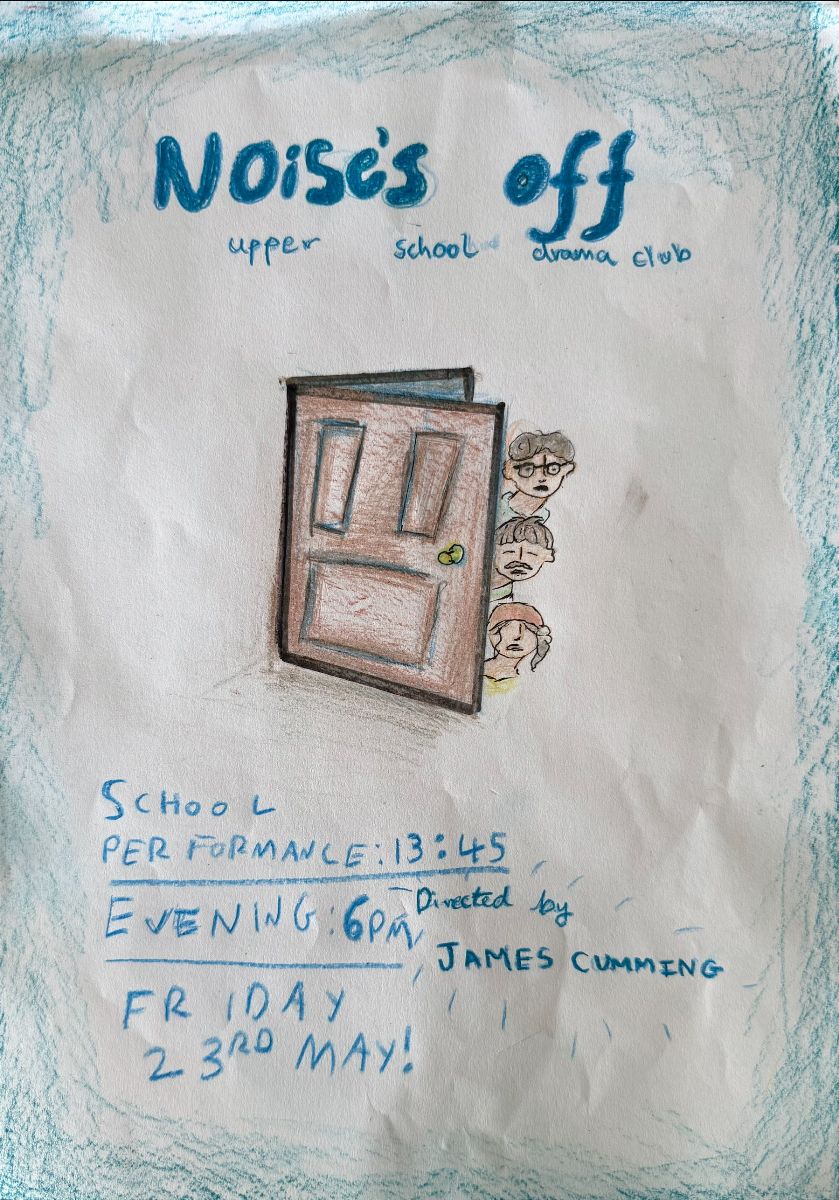 Noise's off
upper school drama club
SCHOOL
PERFORMANCE: 13:45
EVENING: 6PM
Directed by
JAMES CUMMING
FRIDAY
23RD MAY!